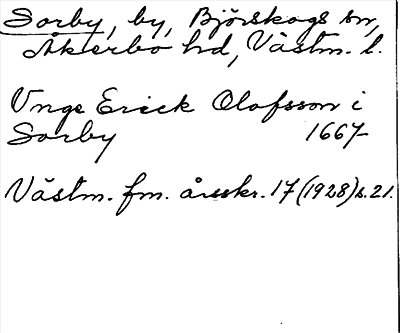 Sorby, by, Björskogs sn,
Åkerbo hd, Västm. l.
Unge Erick Olofsson i
Sorby 1667
Västm. fm. årsskr. 17 (1928) s. 21.